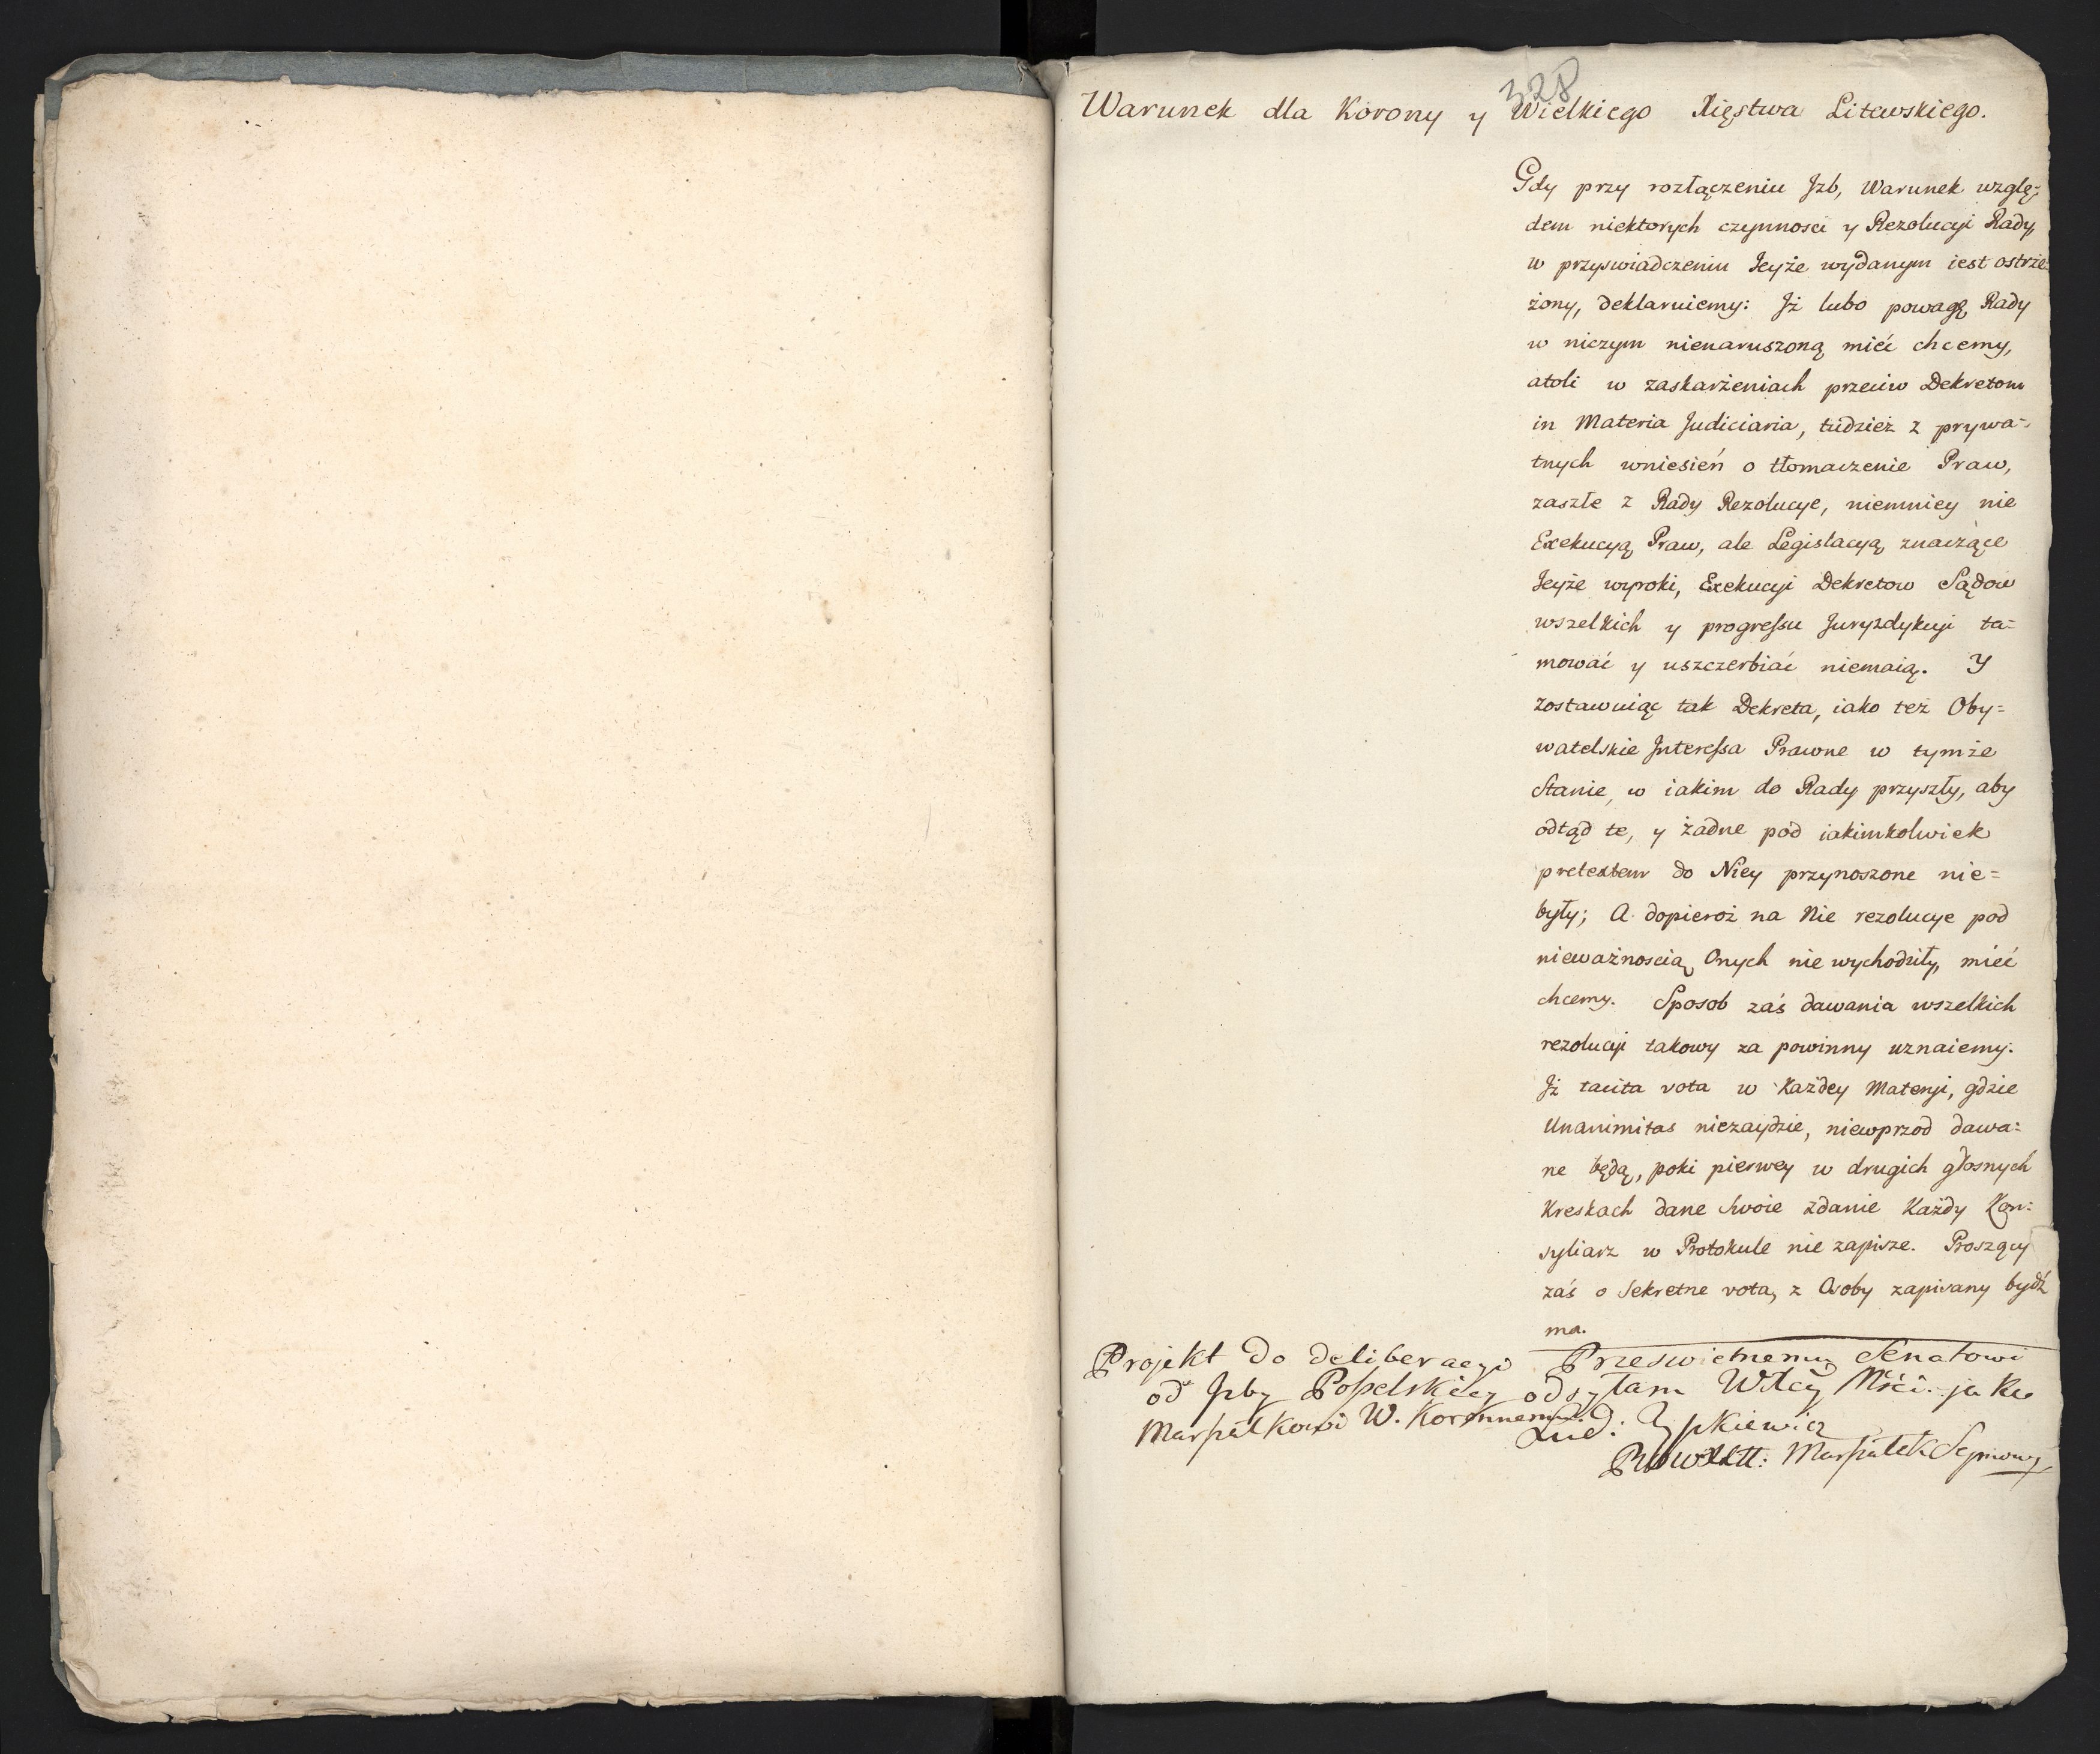 328
Warunek dla Korony y Wielkiego Xięstwa Litewskiego.
Gdy przy rozłączeniu Jzb, Warunek wzglę=
dem niektorych czynnosci y Rezolucyi Rady,
w przyswiadczeniu Jeyże wydanym iest ostrze=
żony, deklaruiemy: Jż lubo powagę Rady
w niczym nienaruszoną mieć chcemy,
atoli w zaskarżeniach przeciw Dekretom
in Materia Judiciaria, tudzież z prywa=
tnych wniesień o tłomaczenie Praw,
zaszłe z Rady Rezolucye, niemniey nie
Exekucyą Praw, ale Legislacyą znaczące
Jeyże wyroki, Exekucyi Dekretow Sądow
wszelkich y progressu Juryzdykcyi ta=
mować y uszczerbiać niemaią. Y
zostawuiąc tak Dekreta, iako też Oby=
watelskie Jnteressa Prawne w tymże
Stanie, w iakim do Rady przyszły, aby
odtąd te, y żadne pod iakimkolwiek
pretextem do Niey przynoszone nie=
były; A dopieroż na Nie rezolucye pod
nieważnoscią Onych nie wychodziły, mieć
chcemy. Sposob zaś dawania wszelkich
rezolucyi takowy za powinny uznaiemy.
Jż tacita vota w Każdey Materyi, gdzie
Unanimitas niezaydzie, niewprzod dawa=
ne będą, poki pierwey w drugich głosnych
Kreskach dane swoie zdanie Każdy Kon=
syliarz w Protokule nie zapisze. Proszący
zaś o Sekretne vota, z Osoby zapisany bydź
ma.
Projekt do deliberacyi Przeswietnemu Senatowi
od Jzby Poselskiey odsyłam Włcy Mści. jako
Marszałkowi W. Koronnemu.
Lud: Tyszkiewicz
Marszałek Sejmowy